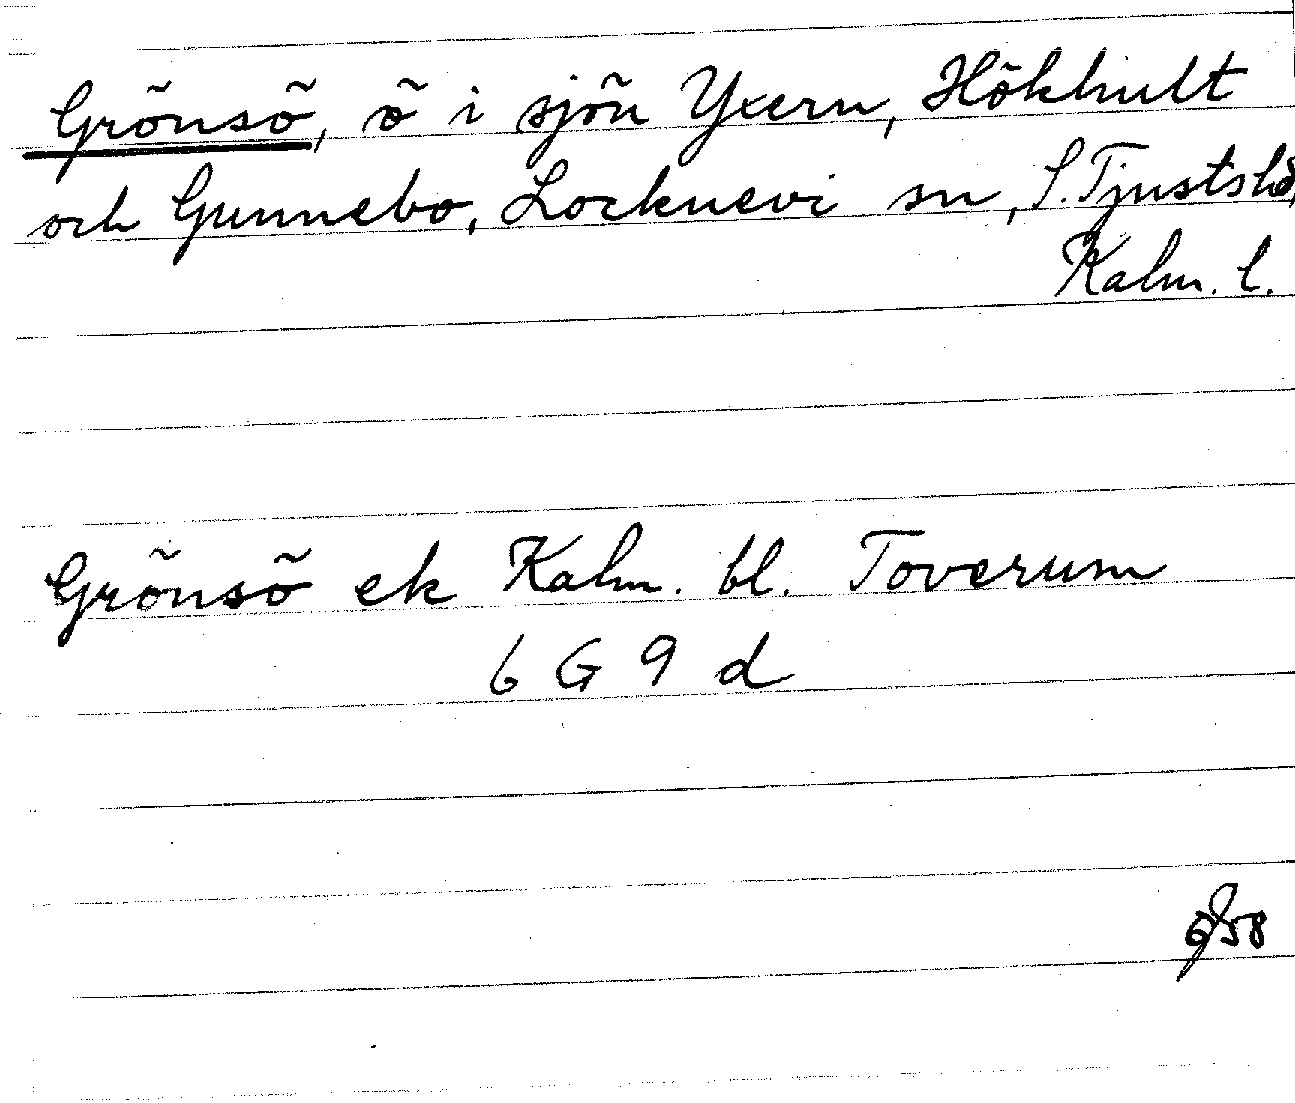 Grönsö, ö i sjön Yxern, Hökhult
och Gunnebo, Locknevi sn, S. Tjustshd,
Kalm. l.
Grönsö ek Kalm. bl. Toverum
6 G 9 d